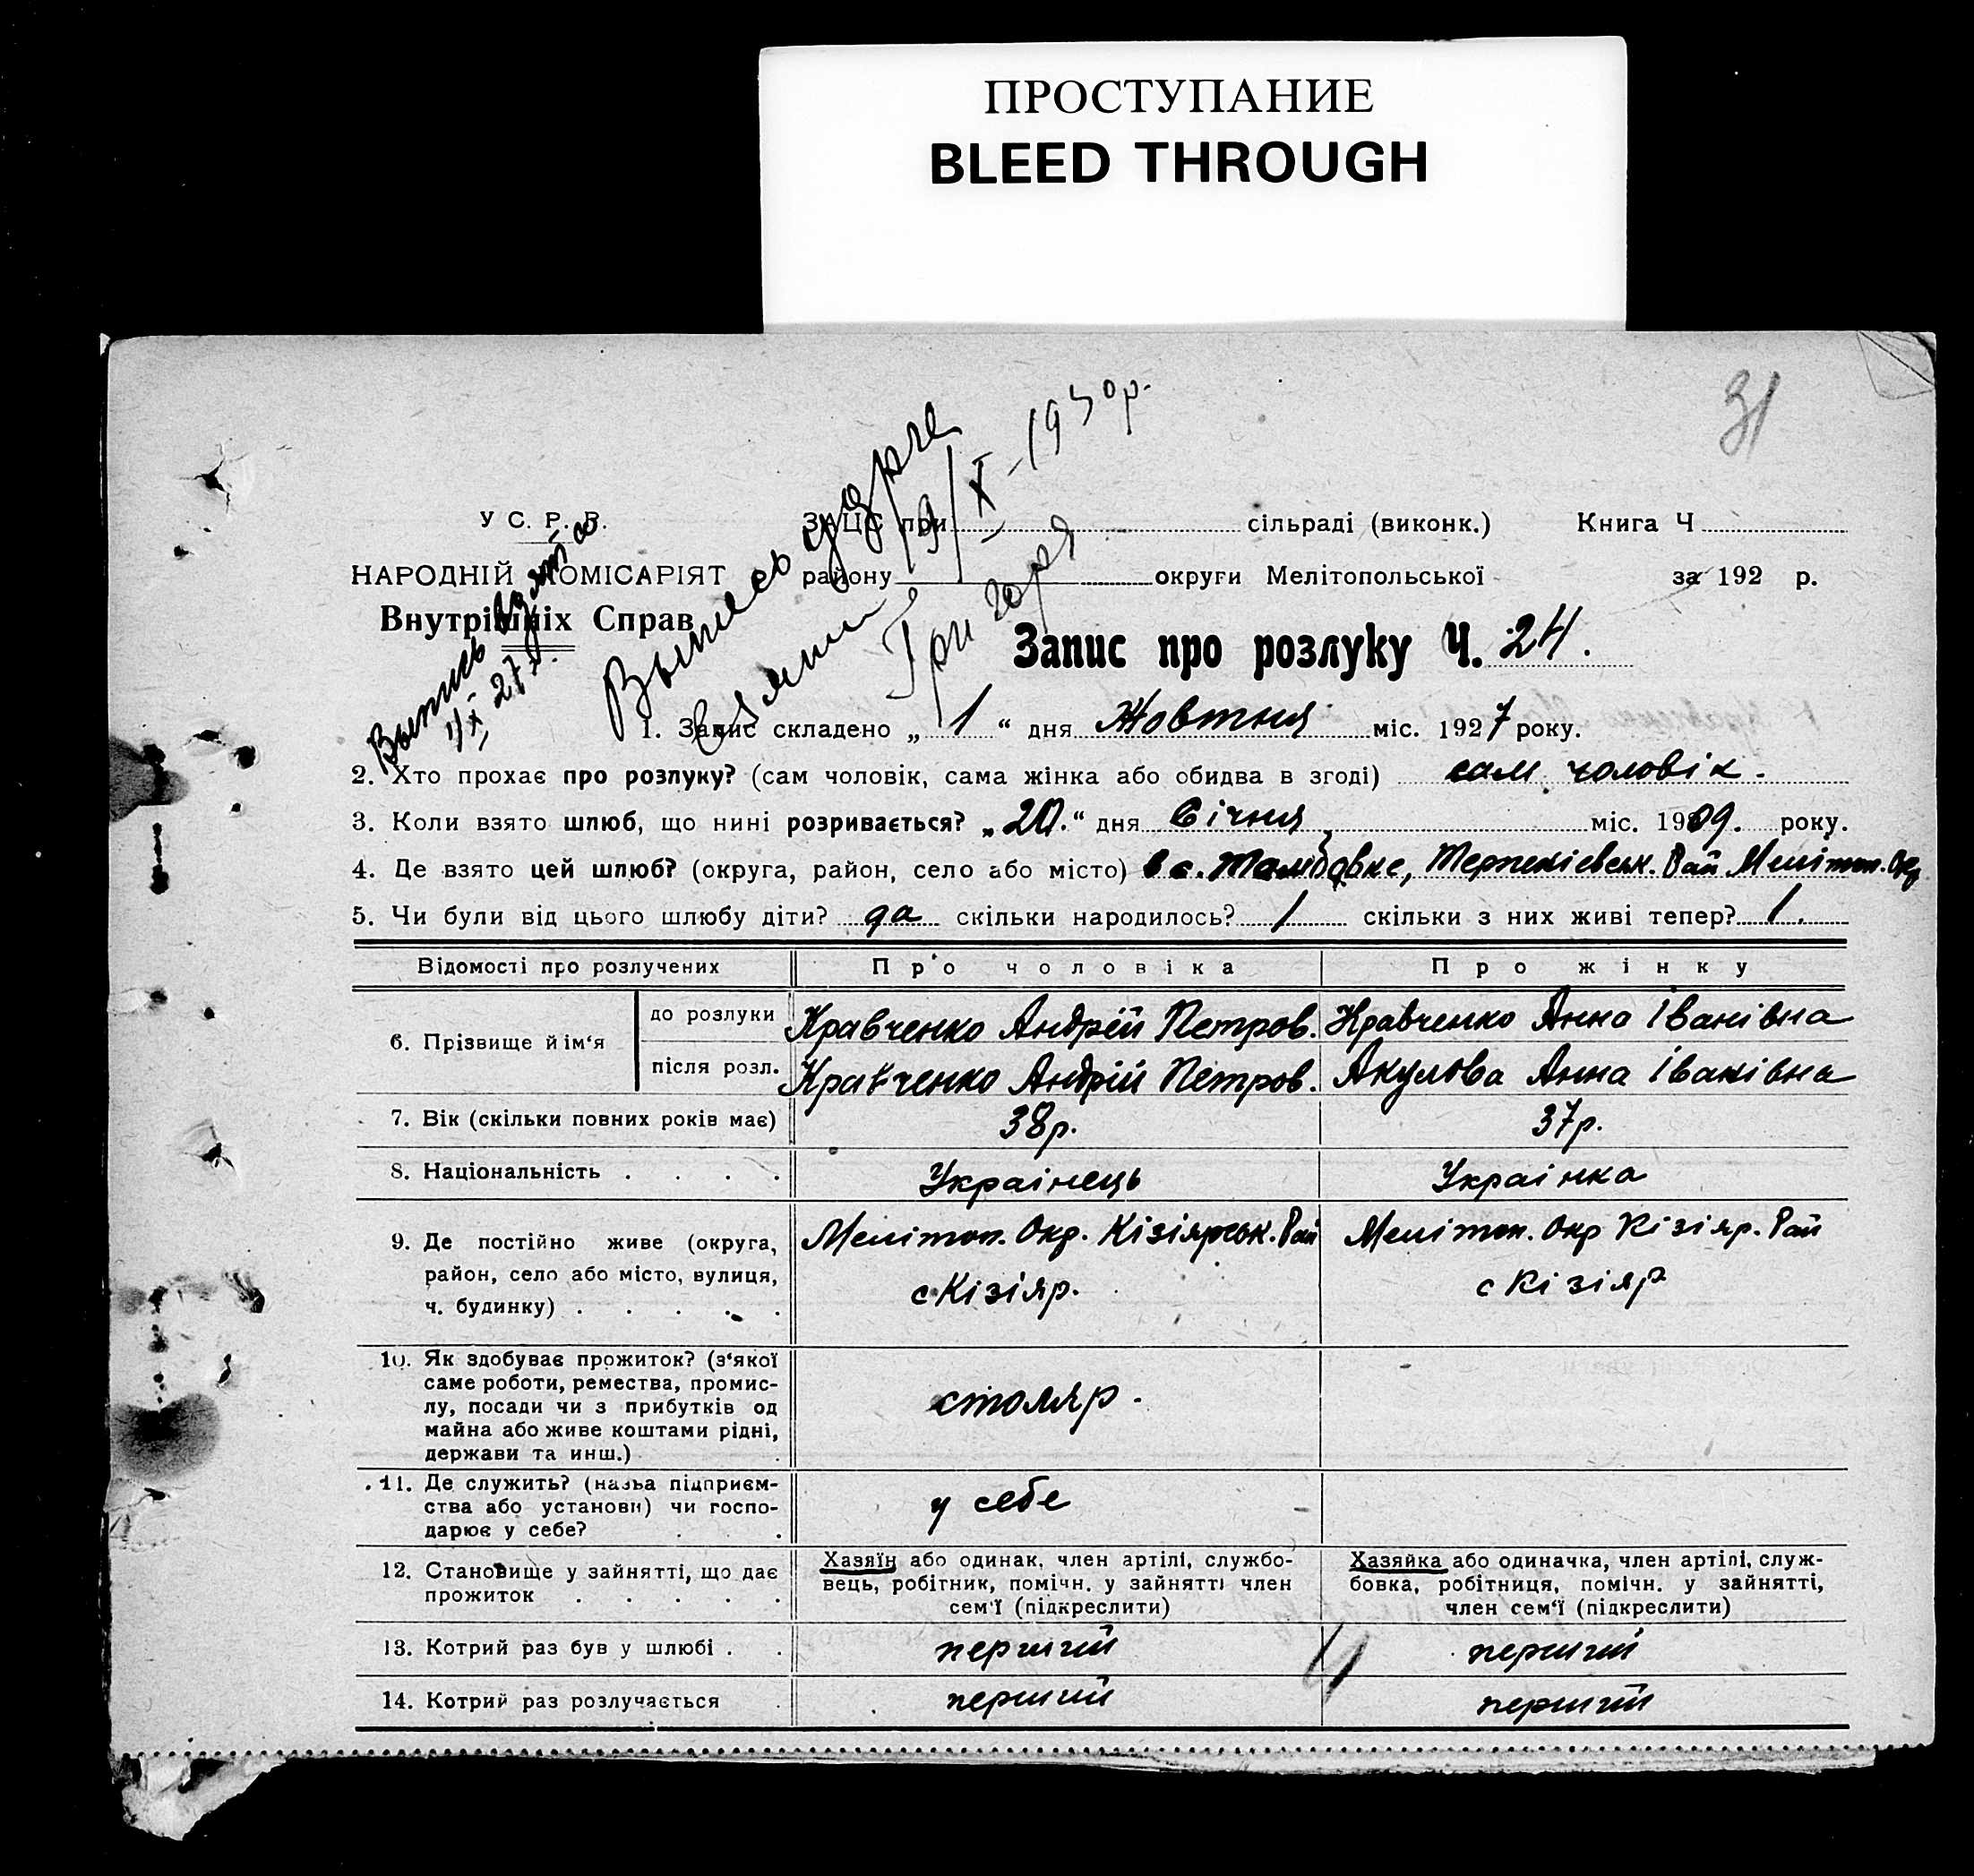 ПРОСТУПАНИЕ
BLEED THROUGH
31
У С. Р. Р.
НАРОДНІЙ КОМІСАРІЯТ
Внутрішніх Справ
ЗАЦС при сільраді (виконк.)
Книга Ч
району округи Мелітопольської
за 192 р.
Выпись взята
1/X 27 г.
Выпись
19/X-1930р.
Запис про розлуку Ч. 24.
1. Запис складено „ 1 “ дня Жовтня міс. 1927 року.
2. Хто прохає про розлуку? (сам чоловік, сама жінка або обидва в згоді) сам чоловік.
3. Коли взято шлюб, що нині розривається? „20.“ дня Січня міс. 1909. року.
4. Де взято цей шлюб? (округа, район, село або місто) в с. Рай Мелітоп. Окр
5. Чи були від цього шлюбу діти? да скільки народилось? 1 скільки з них живі тепер? 1.
Відомості про розлучених Про чоловіка Про жінку
6. Прізвище й ім‘я
до розлуки Кравченко Андрій Петров. Кравченко Анна Іванівна
після розл. Кравченко Андрій Петров. Акулова Анна Іванівна
7. Вік (скільки повних років має) 38р. 37р.
8. Національність . . . . Украінець Украінка
9. Де постійно живе (округа, район, село або місто, вулиця, ч. будинку) . . . . .
Мелітоп. Окр. Кізіярськ. Рай
с Кізіяр.
Мелітоп. Окр Кізіяр. Рай
с Кізіяр
10. Як здобуває прожиток? (з‘якої
саме роботи, ремества, промис-
лу, посади чи з прибутків од
майна або живе коштами рідні,
держави та инш.)
столяр.
11. Де служить? (назва підприєм-
ства або установи) чи госпо-
дарює у себе? . .
у себе
12. Становище у зайнятті, що дає
прожиток . . . . .
Хазяїн або одинак, член артілі, службо-
вець, робітник, помічн. у зайнятті член
сем‘ї (підкреслити)
Хазяйка або одиначка, член артілі, служ-
бовка, робітниця, помічн. у зайнятті,
член сем‘ї (підкреслити)
13. Котрий раз був у шлюбі . . перший перший
14. Котрий раз розлучається . перший перший